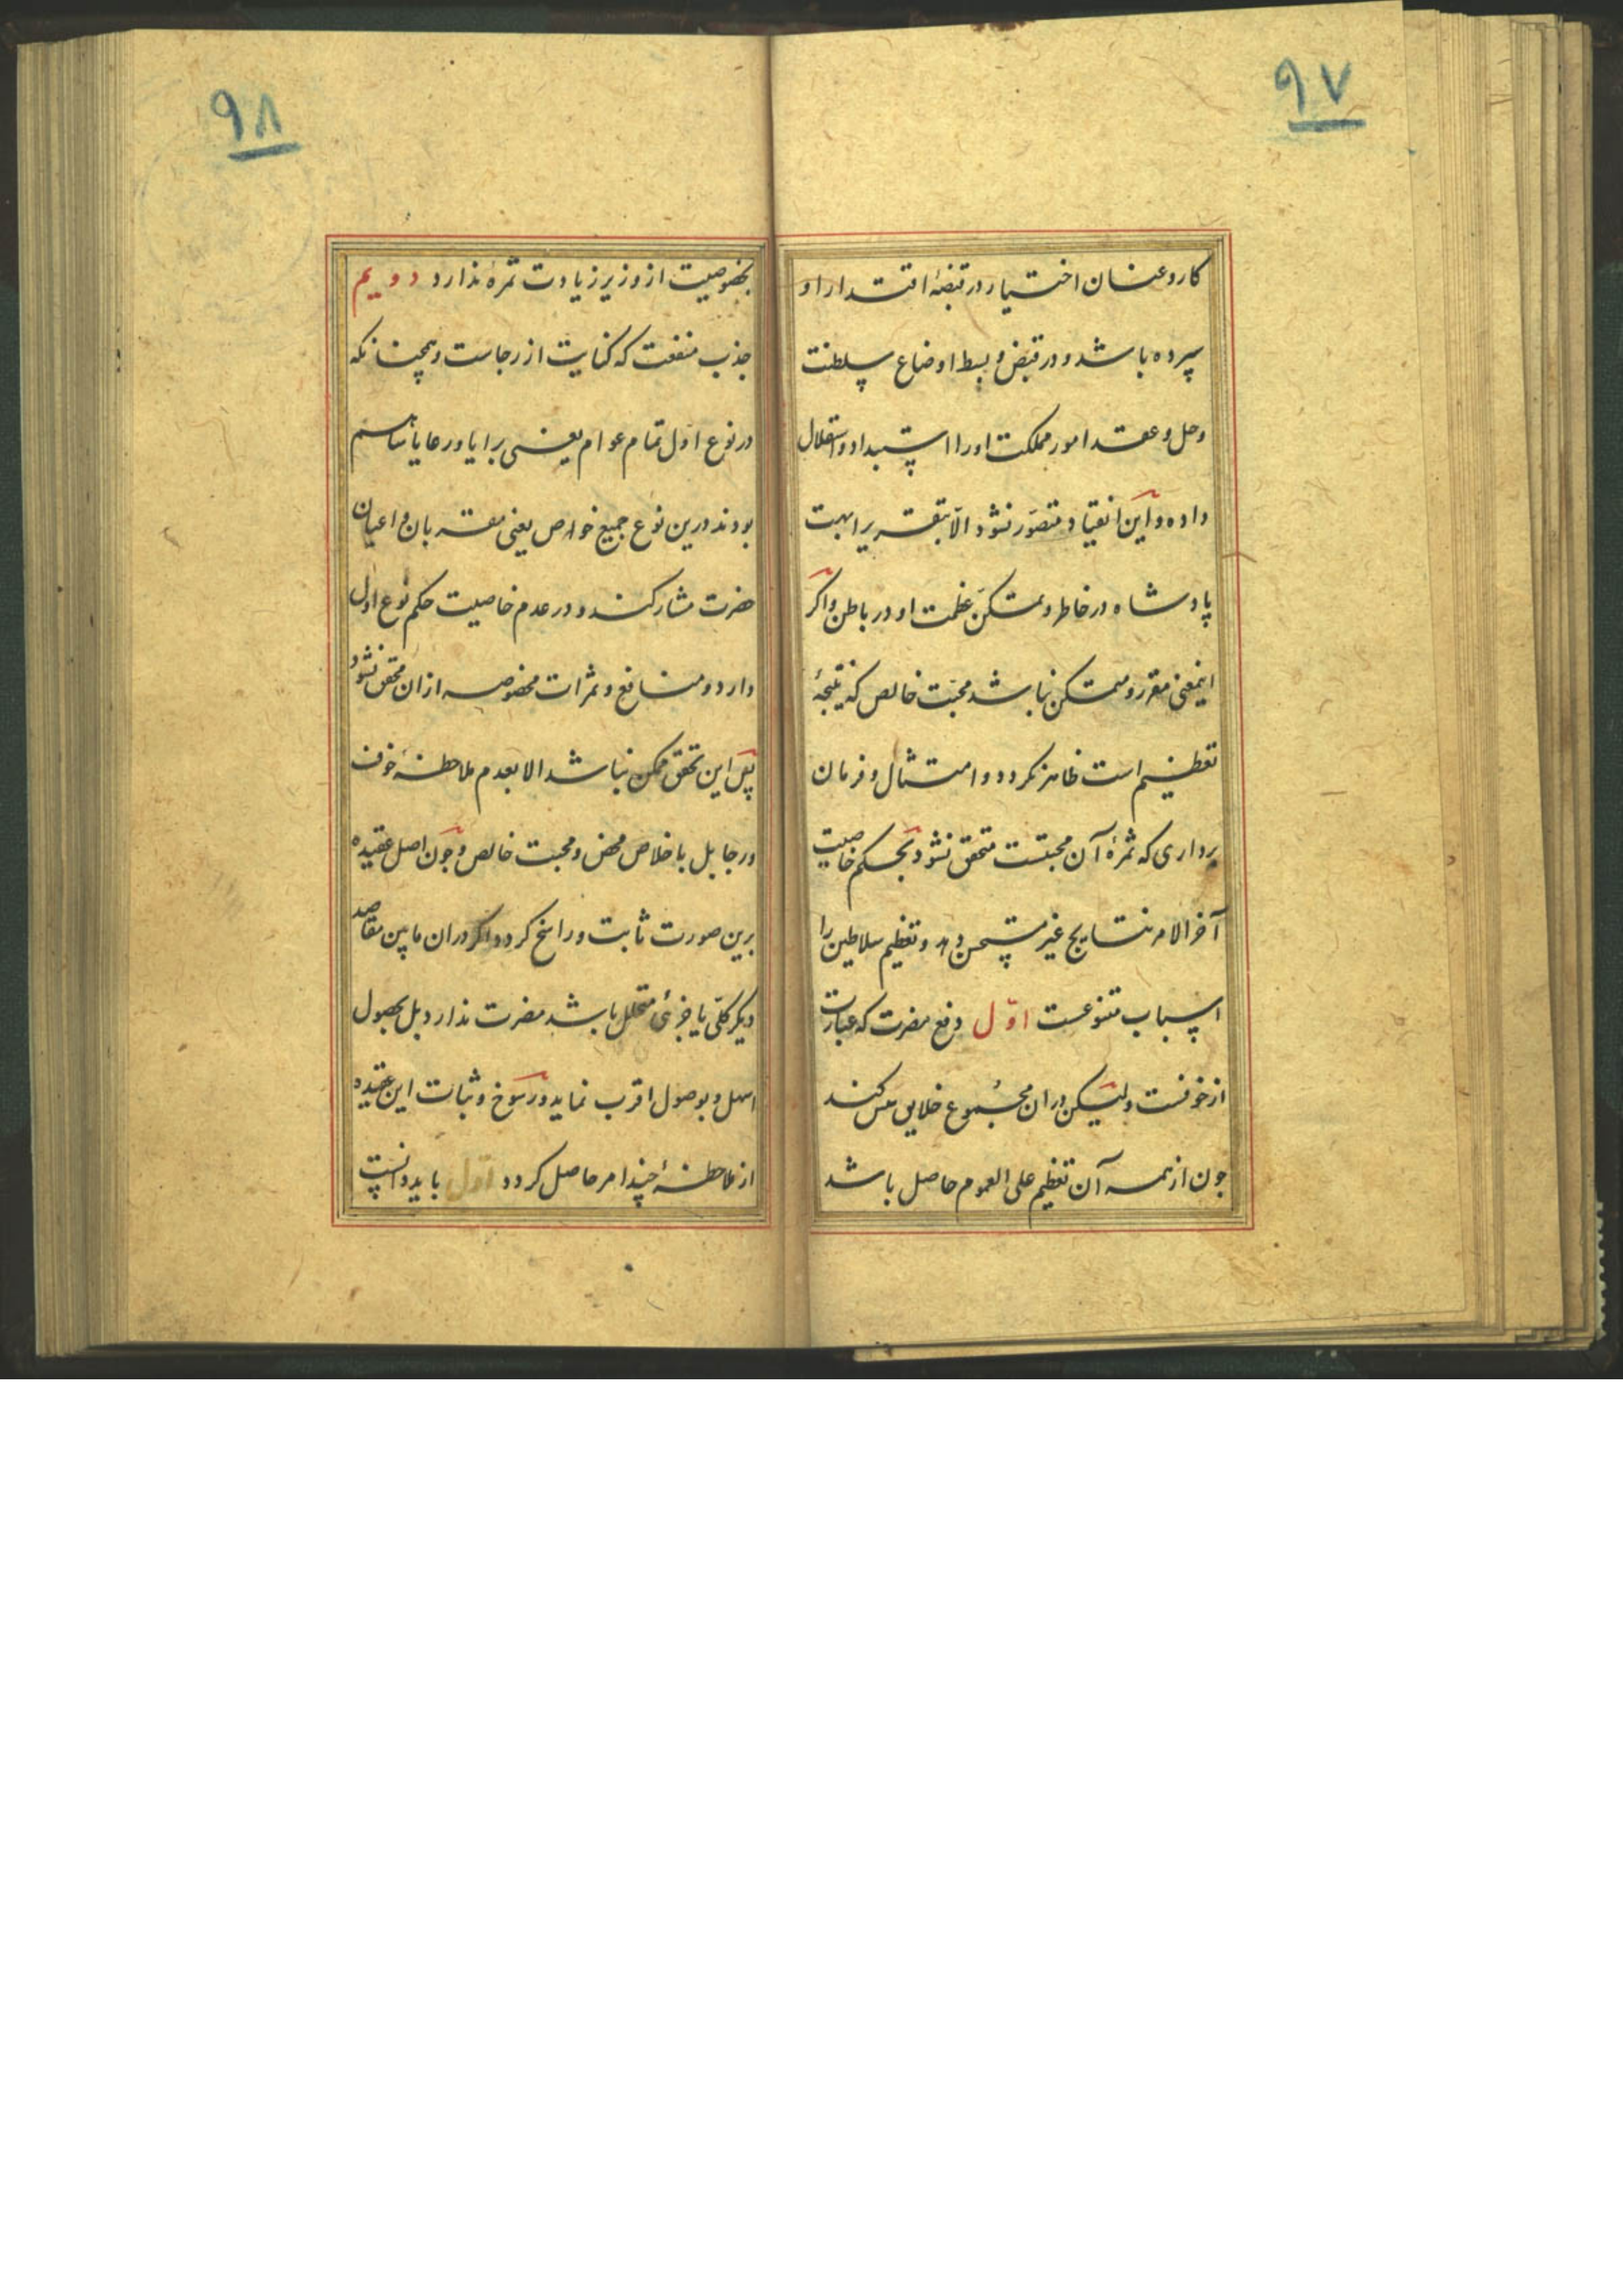 ۹۷
کار و عنان اختیار در قبضهٔ اقتدار او
سپرده باشد و در قبض و بسط اوضاع سلطنت
و حل و عقد امور مملکت او را استبداد و استقلال
داده و این انقیاد متصوّر نشود الّا بتقریر ابهت
پادشاه در خاطر و تمکّن عظمت او در باطن و اگر
اینمعنی مقرر و متمکن نباشد محبّت خالص که نتیجهٔ
تعظیم است ظاهر نکردد و امتثال و فرمان
برداری که ثمرهٔ آن محبتست متحقق نشود بحکم خاصیت
آخر الامر نتایج غیر مستحسن دهد و تعظیم سلاطین را
اسباب متنوعست اوّل دفع مضرت که عبارت
از خوفست و لیکن در ان مجموع خلایق کنند
جون از همه آن تعظیم علی العموم حاصل باشد
۹۸
بخصوصیت از وزیر زیادت ثمرهٔ ندارد دویم
جذب منفعت که کنایت از رجاست و همچنانکه
در نوع اوّل تمام عوام یعنی برایا و رعایا مساهم
بودند درین نوع جمیع خواص یعنی مقربان و اعیان
حضرت مشارکند و در عدم خاصیت حکم نوع اول
دارد و منافع و ثمرات مخصوصه ازان محقق نشود
پس این تحقق ممکن نباشد الا بعدم ملاحظهٔ خوف
و رجا بل باخلاص محض و محبت خالص و جون اصل عقیده
برین صورت ثابت و راسخ کردد اکر دران مابین مقاصد
دیکر کلّی یا جزئی متخلل باشد مضرت ندارد بل بحصول
اسهل و بوصول اقرب نماید و رسوخ و ثبات این عقیده
از ملاحظهٔ چند امر حاصل کردد اوّل باید دانست